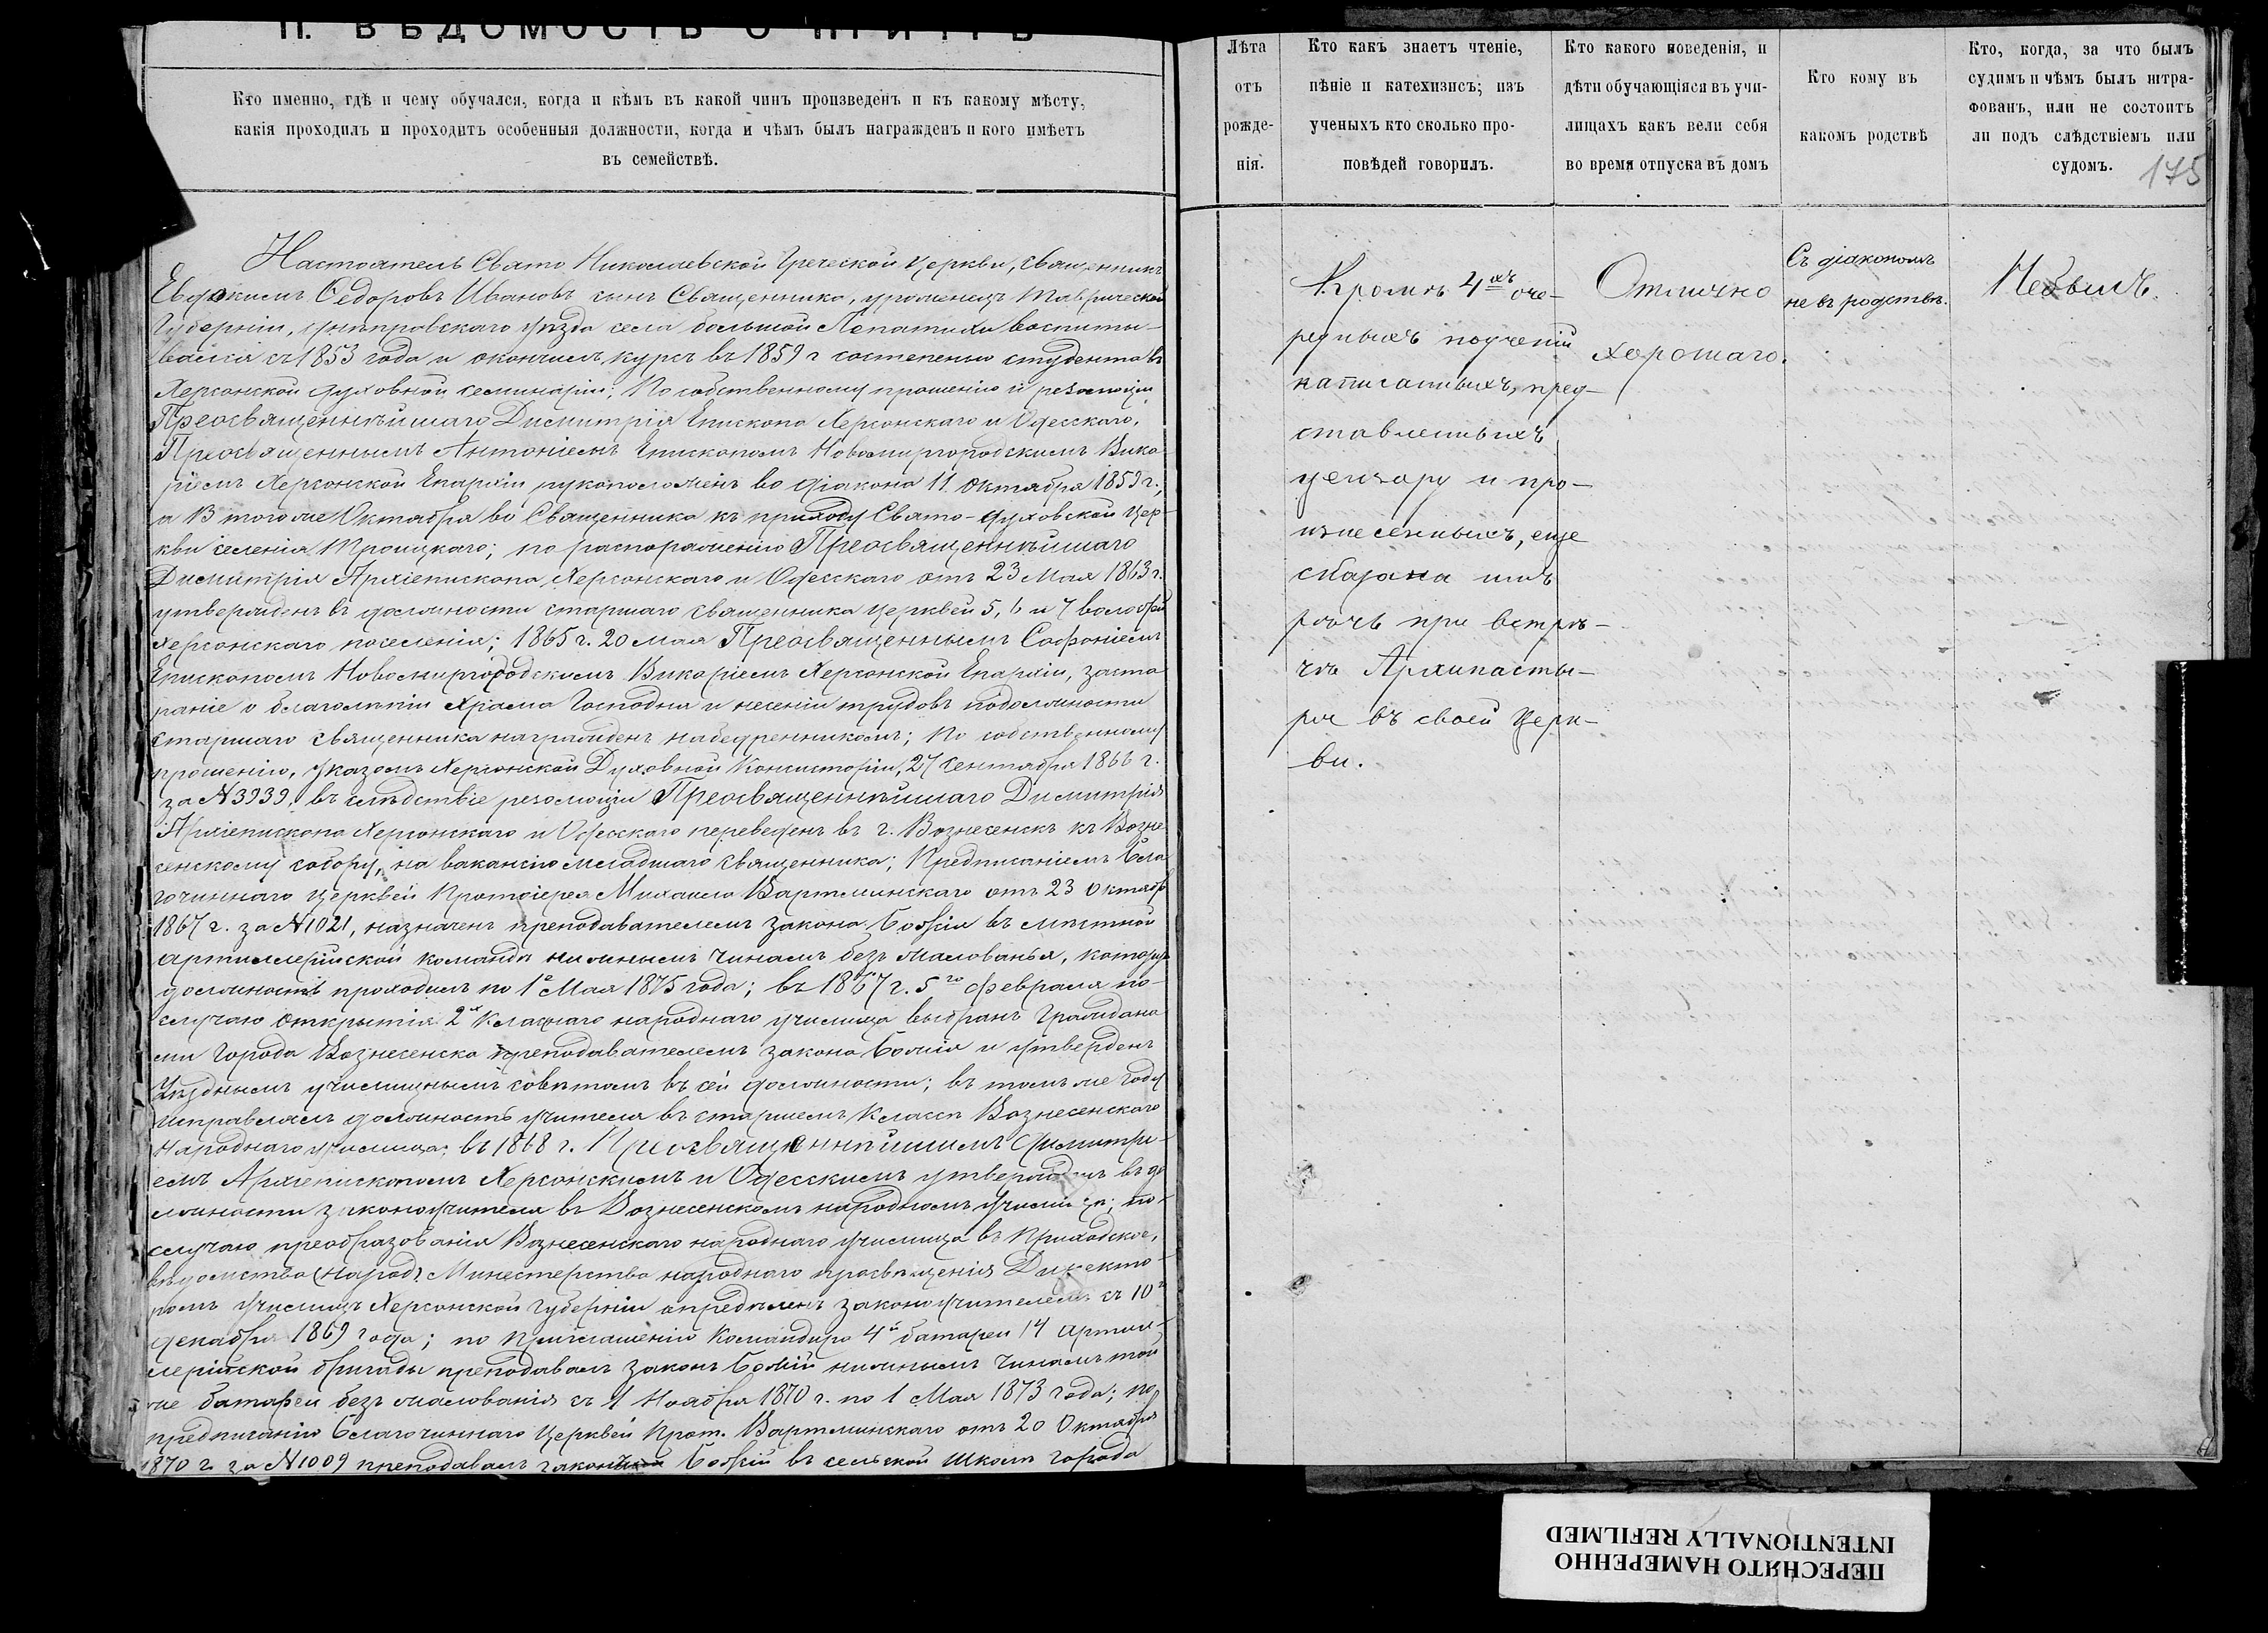 II. ВѢДОМОСТЬ О ПРИЧТѢ
Кто именно, гдѣ и чему обучался, когда и кѣмъ въ какой чинъ произведенъ и къ какому мѣсту,
какія проходилъ и проходитъ особенныя должности, когда и чѣмъ былъ награжденъ и кого имѣетъ
въ семействѣ.
Настоятель Свято Николаевской Греческой Церкви, священникъ
Евдокимъ Ѳедоровъ Ивановъ сынъ Священника, уроженецъ Таврической
Губерніи, Днѣпровскаго уѣзда села большой Лепатихи воспиты-
вался съ 1853 года и окончилъ курсъ въ 1859 г состепенью студента въ
Херсонской духовной семинаріи; По собственному прошенію и резолюціи
Преосвященнѣйшаго Димитрія Епископа Херсонскаго и Одесскаго,
Преосвященнымъ Антоніемъ Епископомъ Новомиргородскимъ Вика-
ріемъ Херсонской Епархіи рукоположенъ во діакона 11 Октября 1859 г.;
а 13 того же Октября во Священника къ приходу Свято-Духовской Цер-
кви селенія Троицкаго; по распоряженію Преосвященнѣйшаго
Димитрія Архіепископа Херсонскаго и Одесскаго отъ 23 Мая 1863 г.
утвержденъ въ должности старшаго священника церквей 5, 6 и 7 волостей
Херсонскаго поселенія; 1865 г. 20 мая Преосвященнымъ Софоніемъ
Епископомъ Новомиргородскимъ Викаріемъ Херсонской Епархіи, заста-
раніе о благолѣпіи Храма Господня и несеніи трудовъ подолжности
старшаго священника награжденъ набедренникомъ; По собственному
прошенію, указомъ Херсонской Духовной Консисторіи, 27 Сентября 1866 г.
за N 3939, въ слѣдствіе резолюціи Преосвященнѣйшаго Димитрія
Архіепископа Херсонскаго и Одесскаго переведенъ въ г. Вознесенскъ къ Возне-
сенскому собору, на вакансію младшаго священника; Предписаніемъ Бла-
гочиннаго церквей Протоіерея Михаила Вартминскаго отъ 23 Октяб
1867 г. за N 1021, назначенъ преподавателемъ закона Божія въ мѣстной
артиллерійской командѣ нижнимъ чинамъ безъ жалованья, котору
должность проходилъ по 1е Мая 1875 года; въ 1867 г. 5го февраля по-
случаю открытія 2х класнаго народнаго училища выбранъ Граждана-
ми города Вознесенска преподавателемъ закона Божія и утвержденъ
Уѣзднымъ училищнымъ совѣтомъ въ сей должности; въ томъ же году
исправлялъ должность учителя въ старшемъ классѣ Вознесенскаго
Народнаго училища; въ 1868 г. Преосвященнѣйшимъ Димитрі-
емъ Архіепископомъ Херсонскимъ и Одесскимъ утвержденъ въ до-
лжности законоучителя въ Вознесенскомъ народномъ училищѣ; по-
случаю преобразованія Вознесенскаго народнаго училища въ Приходское,
вѣдомства (народ) Министерства народнаго просвѣщенія Директо-
ромъ училищъ Херсонской Губерніи опредѣленъ законоучителемъ съ 10го
декабря 1869 года; по приглашенію Командира 4й батареи 14 артил-
лерійской бригады преподавалъ законъ Божій нижнимъ чинамъ той
же батареи безъ жалованія съ 1 Ноября 1870 г. по 1 Мая 1873 года; по
предписанію Благочиннаго Церквей Прот. Вартминскаго отъ 20 Октября
1870 г. за N 1009 преподавалъ законъ Божій въ сельской школѣ города
Лѣта
отъ
рожде-
нія.
Кто какъ знаетъ чтеніе,
пѣніе и катехизисъ; изъ
ученыхъ кто сколько про-
повѣдей говорилъ.
Кто какого поведенія, и
дѣти обучающіяся въ учи-
лищахъ какъ вели себя
во время отпуска въ домъ
Кто кому въ
какомъ родствѣ
Кто, когда, за что былъ
судимъ и чѣмъ былъ штра-
фованъ, или не состоитъ
ли подъ слѣдствіемъ или
судомъ.
175
Кромѣ 4хъ оче-
редныхъ поученій
написанныхъ, пред-
ставленныхъ
цензору и про-
изнесенныхъ, еще
сказана имъ
рѣчь при встрѣ-
чѣ Архипасты-
ря въ своей Церк-
ви.
Отлично
хорошаго.
Съ діакономъ
не въ родствѣ.
Небылъ.
ПЕРЕСНЯТО НАМЕРЕННО
INTENTIONALLY REFILMED